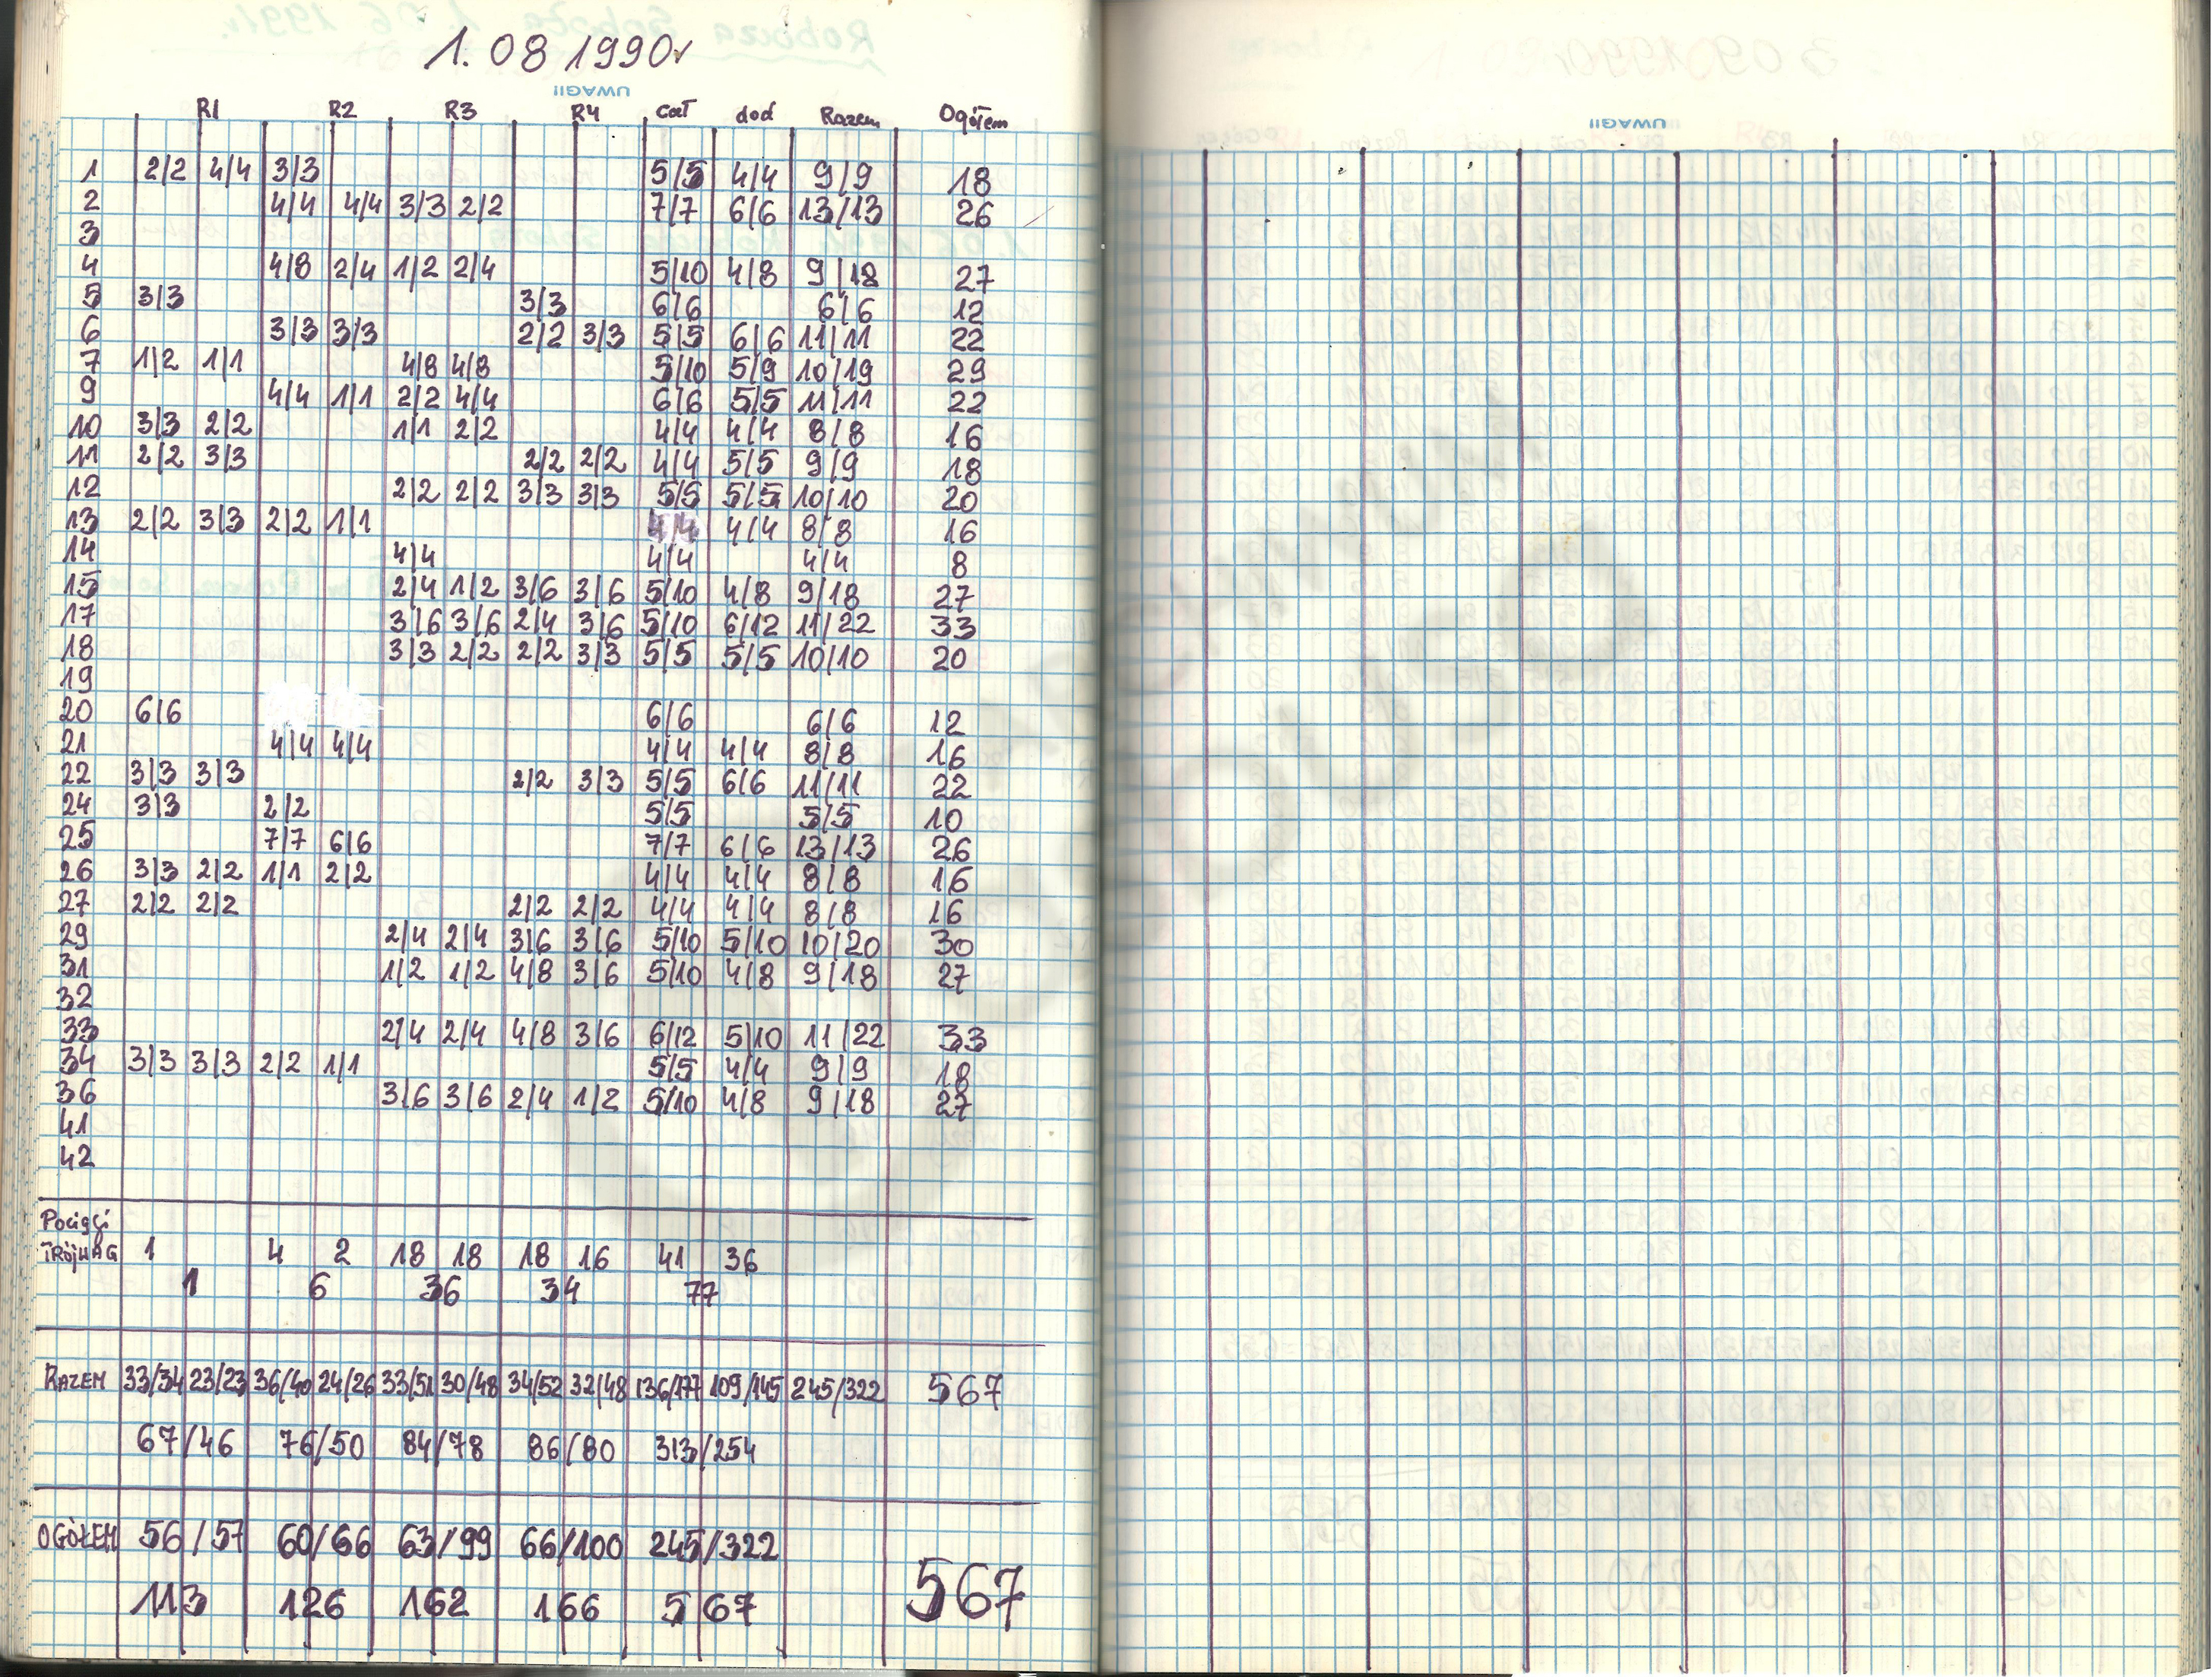 1. 08 1990r
UWAGI!
R1 R2 R3 R4 cał dod Razem Ogółem
UWAGI!
1 2/2 4/4 3/3 5/5 4/4 9/9 18
2 4/4 4/4 3/3 2/2 7/7 6/6 13/13 26
3
4 4/8 2/4 1/2 2/4 5/10 4/8 9/18 27
5 3/3 3/3 6/6 6/6 12
6 3/3 3/3 2/2 3/3 5/5 6/6 11/11 22
7 1/2 1/1 4/8 4/8 5/10 5/9 10/19 29
9 4/4 1/1 2/2 4/4 6/6 5/5 11/11 22
10 3/3 2/2 1/1 2/2 4/4 4/4 8/8 16
11 2/2 3/3 2/2 2/2 4/4 5/5 9/9 18
12 2/2 2/2 3/3 3/3 5/5 5/5 10/10 20
13 2/2 3/3 2/2 1/1 4/4 4/4 8/8 16
14 4/4 4/4 4/4 8
15 2/4 1/2 3/6 3/6 5/10 4/8 9/18 27
17 3/6 3/6 2/4 3/6 5/10 6/12 11/22 33
18 3/3 2/2 2/2 3/3 5/5 5/5 10/10 20
19
20 6/6 6/6 6/6 12
21 4/4 4/4 4/4 4/4 8/8 16
22 3/3 3/3 2/2 3/3 5/5 6/6 11/11 22
24 3/3 2/2 5/5 5/5 10
25 7/7 6/6 7/7 6/6 13/13 26
26 3/3 2/2 1/1 2/2 4/4 4/4 8/8 16
27 2/2 2/2 2/2 2/2 4/4 4/4 8/8 16
29 2/4 2/4 3/6 3/6 5/10 5/10 10/20 30
31 1/2 1/2 4/8 3/6 5/10 4/8 9/18 27
32
33 2/4 2/4 4/8 3/6 6/12 5/10 11/22 33
34 3/3 3/3 2/2 1/1 5/5 4/4 9/9 18
36 3/6 3/6 2/4 1/2 5/10 4/8 9/18 27
41
42
Pociągi
TRÓJWAG 1 4 2 18 18 18 16 41 36
1 6 36 34 77
RAZEM 33/34 23/23 36/40 24/26 33/51 30/48 34/52 32/48 136/177 109/145 245/322 567
67/46 76/50 84/78 86/80 313/254
OGÓŁEM 56/57 60/66 63/99 66/100 245/322
113 126 162 166 567 567